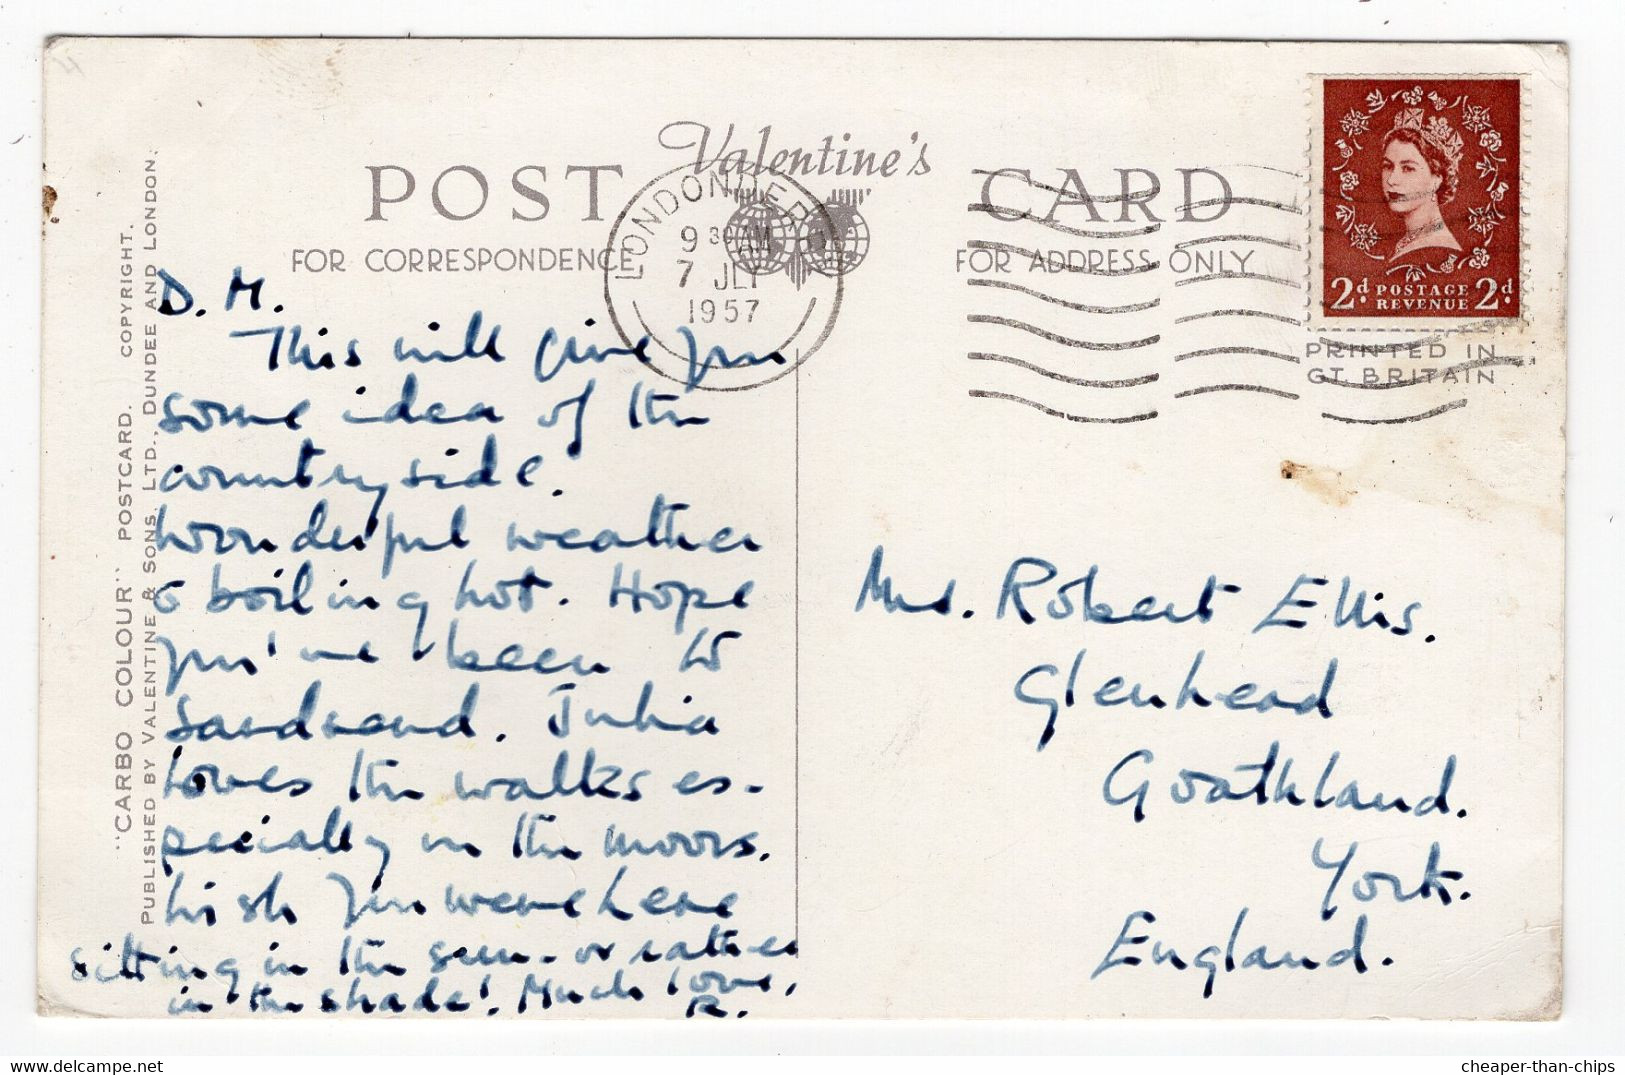 "CARBO COLOUR" POSTCARD. COPYRIGHT.
PUBLISHED BY VALENTINE & SONS, LTD., DUNDEE AND LONDON.
Valentine's
POST CARD
FOR CORRESPONDENCE
FOR ADDRESS ONLY
LONDONDERRY
9 30 AM
7 JLY
1957
2d POSTAGE REVENUE 2d
PRINTED IN
GT. BRITAIN
D. M.
This will give you
some idea of the
countryside.
Wonderful weather
& boiling hot. Hope
you've been to
Sandsend. Julia
loves the walks es-
pecially on the moors.
Wish you were here
sitting in the sun - or rather
in the shade! Much love,
R.
Mrs. Robert Ellis.
Glenhead
Goathland.
York.
England.
cheaper-than-chips